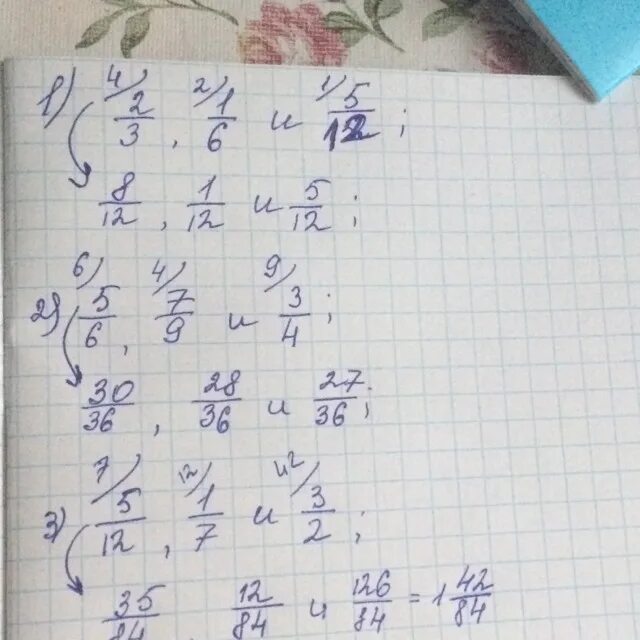 1) ⁴⁾2/3, ²⁾1/6 и ¹⁾5/12;
8/12, 1/12 и 5/12;
2) ⁶⁾5/6, ⁴⁾7/9 и ⁹⁾3/4;
30/36, 28/36 и 27/36;
3) ⁷⁾5/12, ¹²⁾1/7 и ⁴²⁾3/2;
35/84, 12/84 и 126/84 = 1 42/84